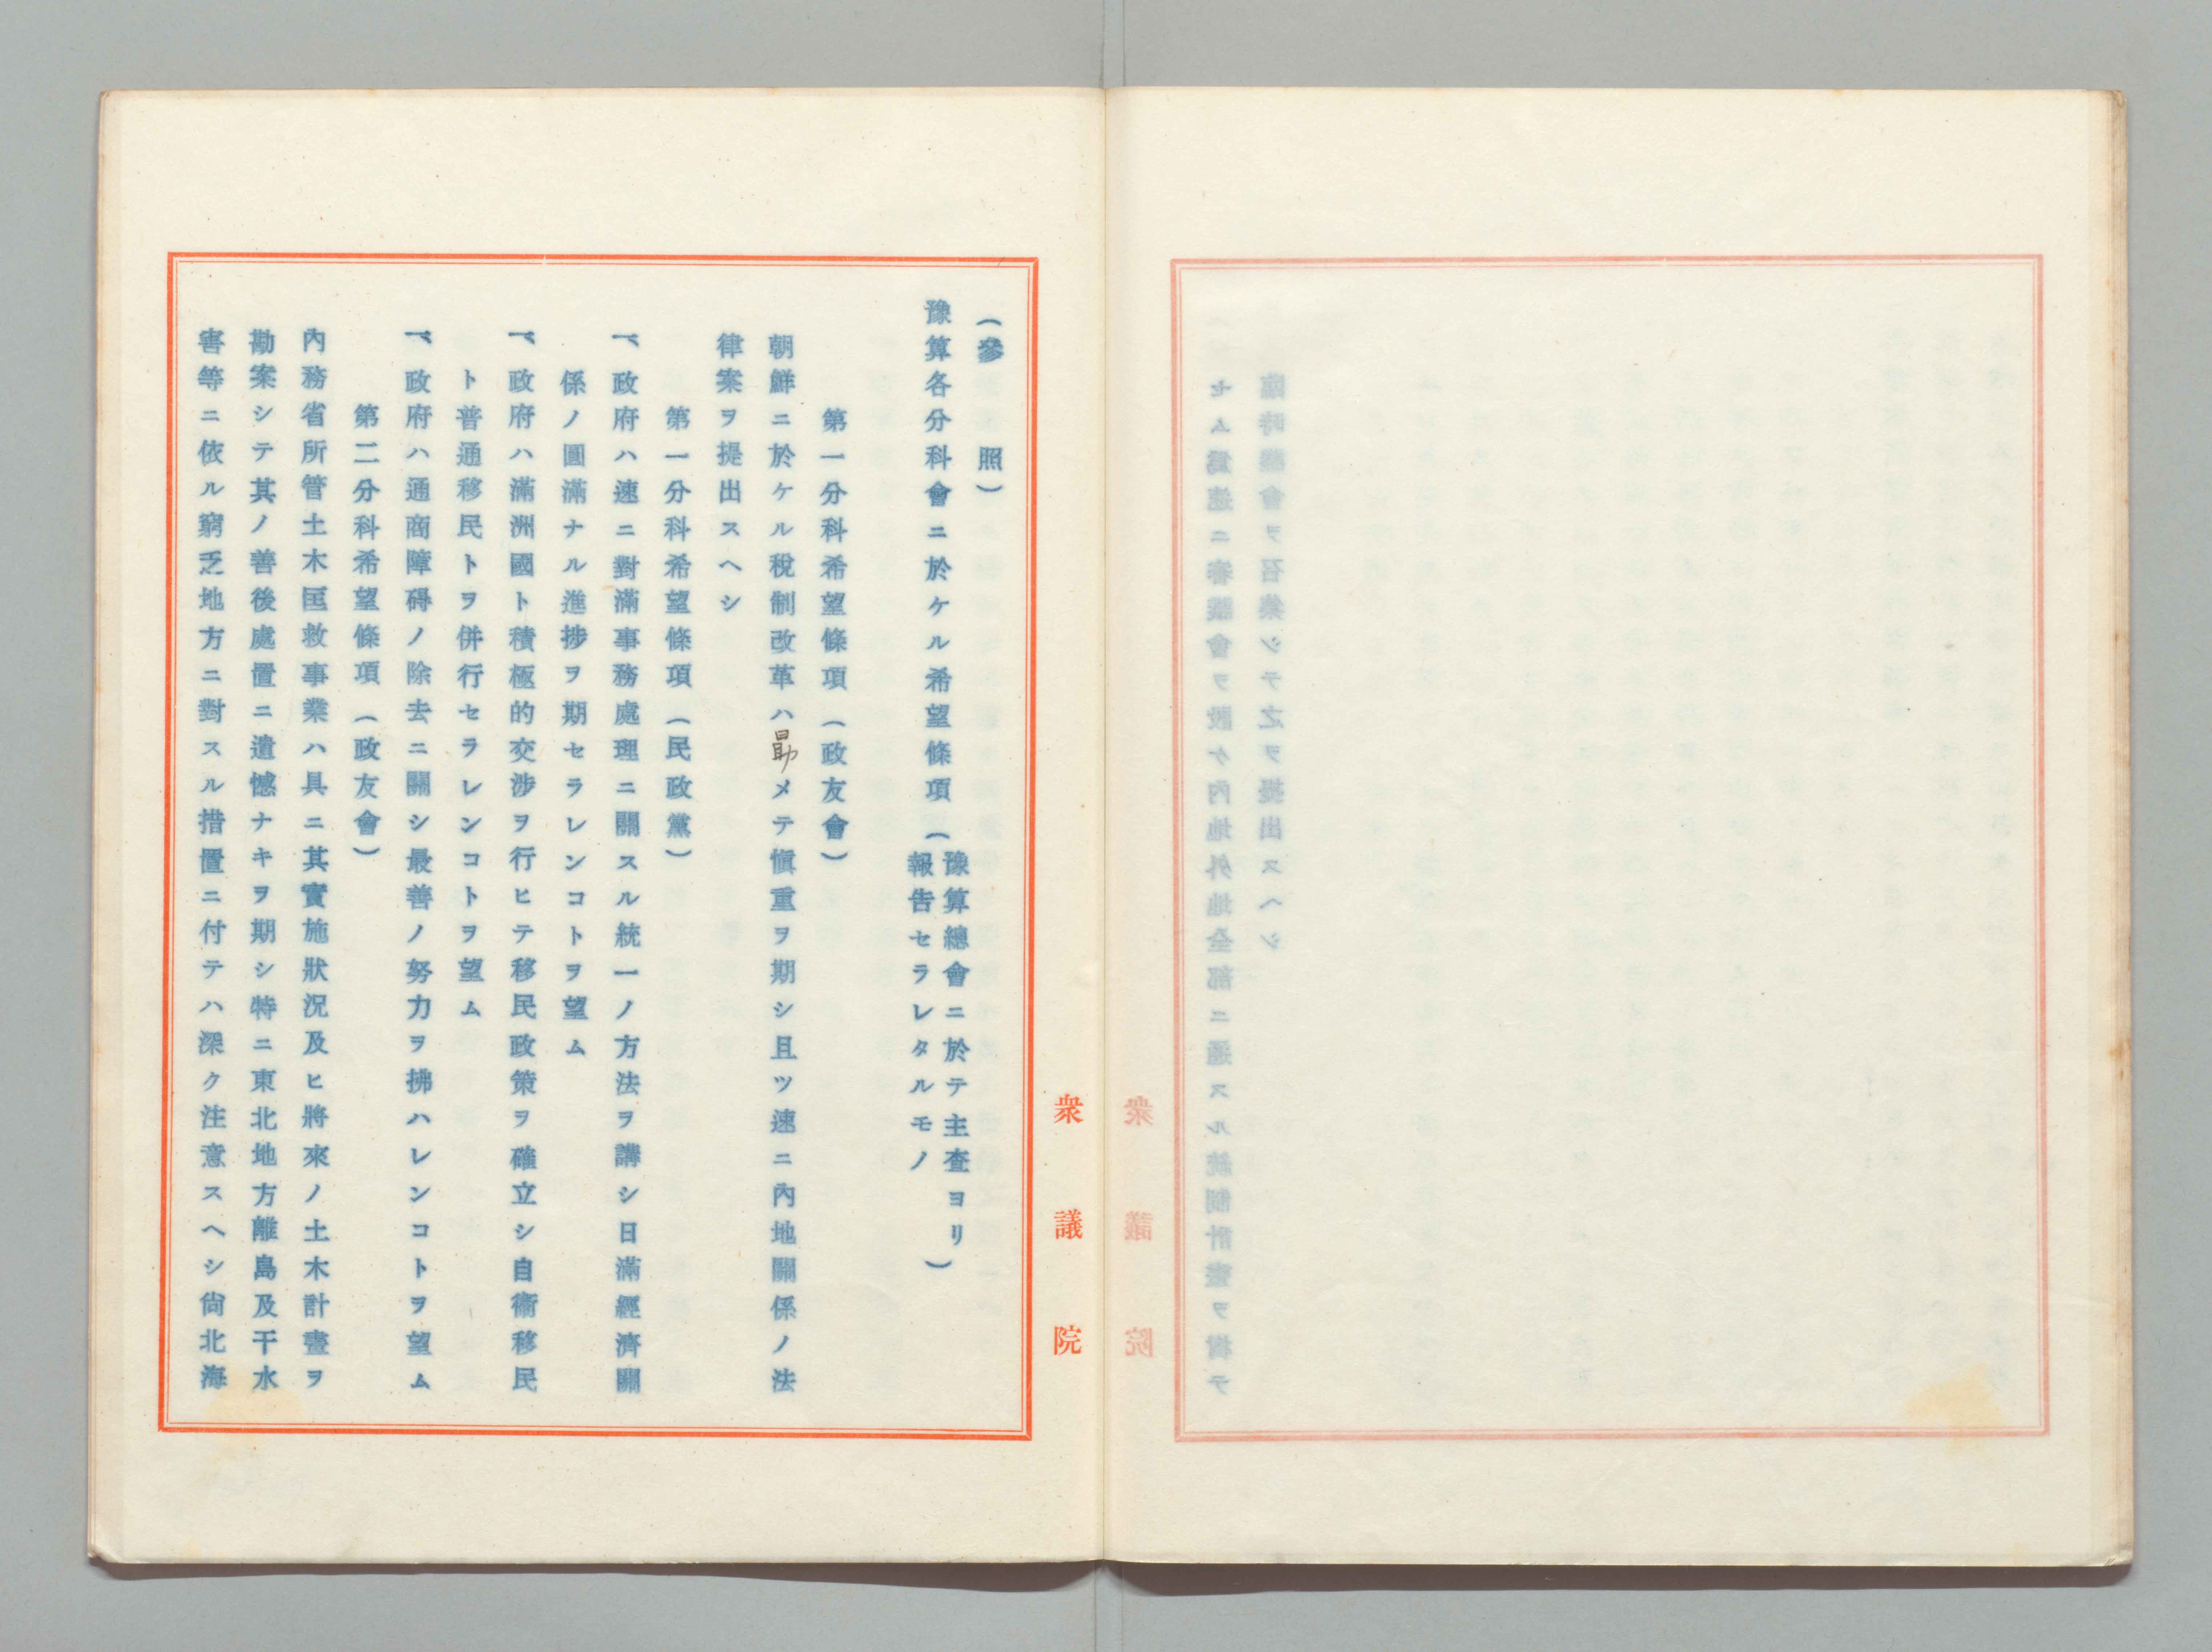 セム爲速ニ審議會ヲ設ケ內地外地全部ニ通スル統制計畫ヲ樹テ
臨時議會ヲ召集シテ之ヲ提出スヘシ
衆議院
衆議院
（參　照）
豫算各分科會ニ於ケル希望條項（豫算總會ニ於テ主査ヨリ
報告セラレタルモノ）
第一分科希望條項（政友會）
朝鮮ニ於ケル稅制改革ハ勗メテ愼重ヲ期シ且ツ速ニ內地關係ノ法
律案ヲ提出スヘシ
第一分科希望條項（民政黨）
一、政府ハ速ニ對滿事務處理ニ關スル統一ノ方法ヲ講シ日滿經濟關
係ノ圓滿ナル進捗ヲ期セラレンコトヲ望ム
一、政府ハ滿洲國ト積極的交涉ヲ行ヒテ移民政策ヲ確立シ自衞移民
ト普通移民トヲ併行セラレンコトヲ望ム
一、政府ハ通商障碍ノ除去ニ關シ最善ノ努力ヲ拂ハレンコトヲ望ム
第二分科希望條項（政友會）
內務省所管土木匡救事業ハ具ニ其實施狀況及ヒ將來ノ土木計畫ヲ
勘案シテ其ノ善後處置ニ遺憾ナキヲ期シ特ニ東北地方離島及干水
害等ニ依ル窮乏地方ニ對スル措置ニ付テハ深ク注意スヘシ尙北海